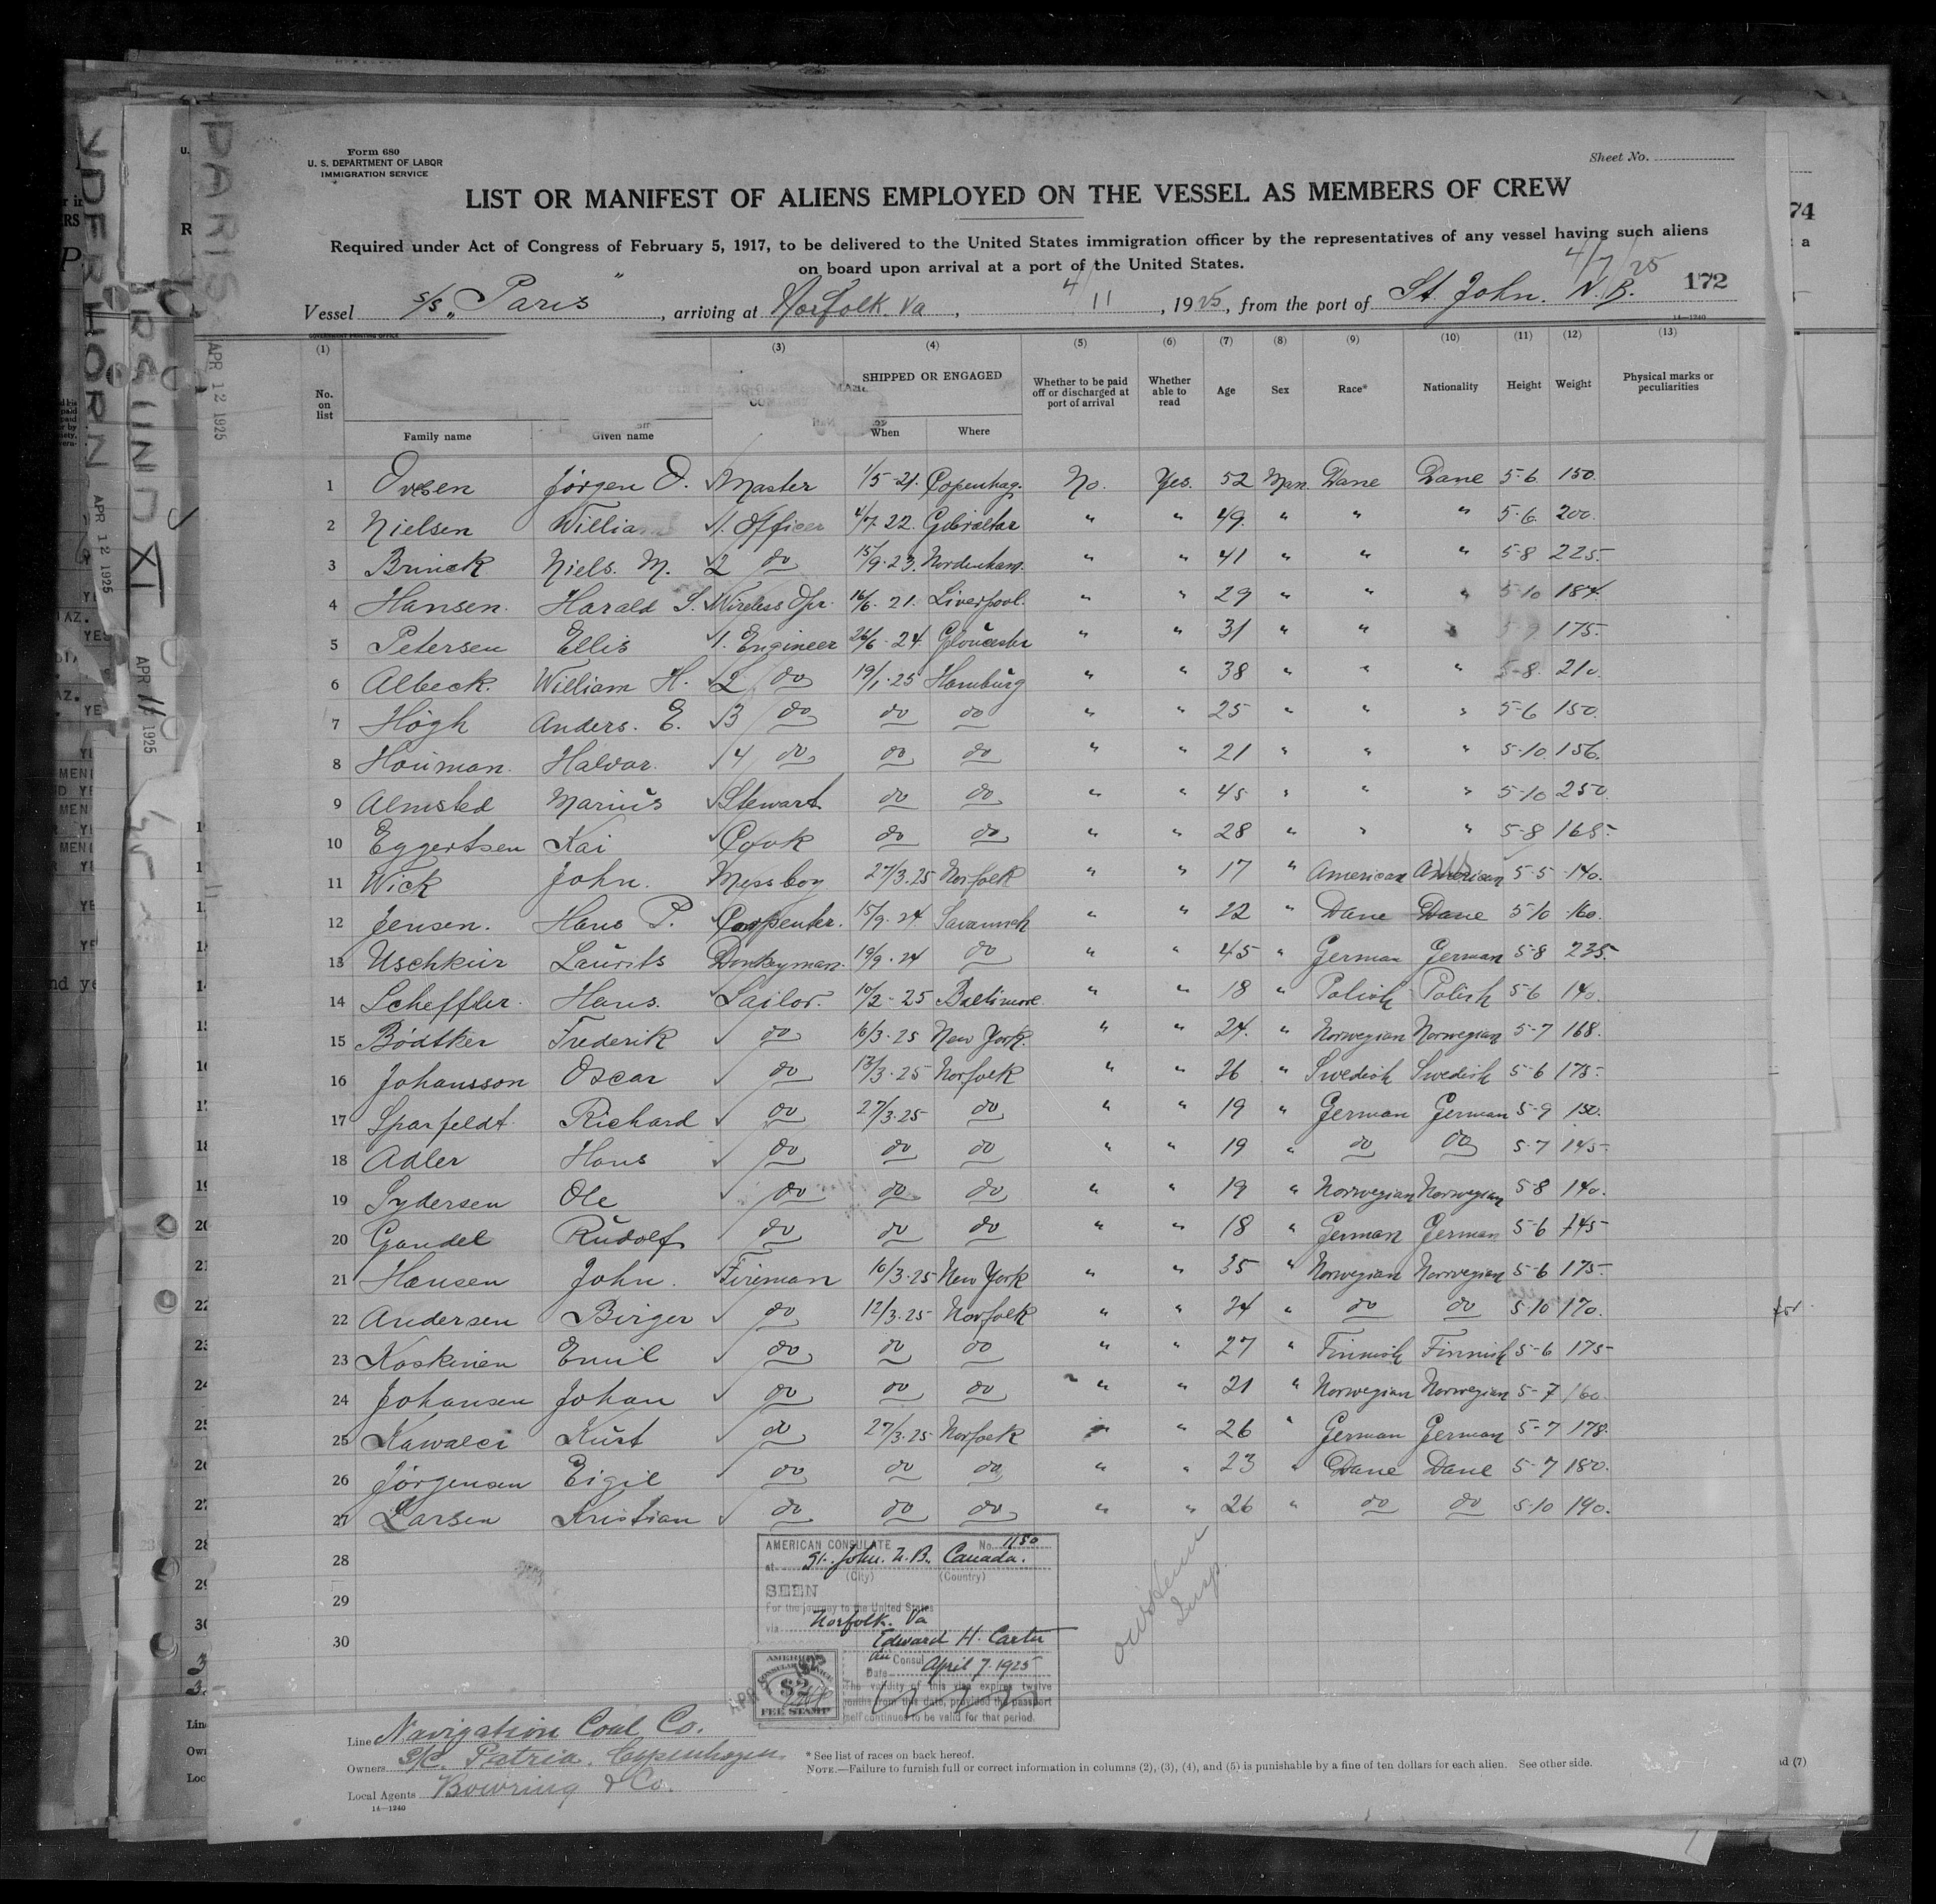 Form 680
U. S. DEPARTMENT OF LABOR
IMMIGRATION SERVICE
Sheet No.
LIST OR MANIFEST OF ALIENS EMPLOYED ON THE VESSEL AS MEMBERS OF CREW
Required under Act of Congress of February 5, 1917, to be delivered to the United States immigration officer by the representatives of any vessel having such aliens
on board upon arrival at a port of the United States.
4/7/25
Vessel s/s „Paris", arriving at Norfolk. Va, 4/11, 1925, from the port of St. John. N.B. 172
14—1240
(1) (3) (4) (5) (6) (7) (8) (9) (10) (11) (12) (13)
No. on list Family name Given name SHIPPED OR ENGAGED When Where Whether to be paid off or discharged at port of arrival Whether able to read Age Sex Race* Nationality Height Weight Physical marks or peculiarities
1 Ovesen Jörgen O. √ Master 1/5-21. Copenhag. No. Yes. 52 Man. Dane Dane 5-6 150.
2 Nielsen William √ 1. Officer 4/7.22. Gibraltar " " 49 " " " 5-6. 200.
3 Brinck Niels. M. √ 2 do 15/9-23. Nordenham. " " 41 " " " 5-8 225.
4 Hansen. Harald S. √ Wireless Opr. 16/6-21. Liverpool. " " 29 " " " 5-10 184.
5 Petersen Ellis √ 1. Engineer 26/6-24. Gloucester " " 31 " " " 5-9 175.
6 Albeck. William H. √ 2 do 19/1-25 Hamburg " " 38 " " " 5-8. 210.
7 Högh Anders. E. √ 3 do do do " " 25 " " " 5-6 150.
8 Houman. Halvor. √ 4 do do do " " 21 " " " 5-10. 156.
9 Almsted Marius √ Stewart do do " " 45 " " " 5-10 250.
10 Eggertsen Kai √ Cook do do " " 28 " " " 5-8 165.
11 Wick John. Messboy 27/3.25 Norfolk " " 17 " American American 5-5 140.
12 Jensen. Hans P. √ Carpenter. 15/9-24. Savannah " " 22 " Dane Dane 5-10 160.
13 Uschkur Laurits Donkeyman. 19/9-24 do " " 45 " German German 5-8 235.
14 Scheffler. Hans. √ Sailor. 10/2-25 Baltimore. " " 18 " Polish Polish 5-6 140.
15 Bödtker Frederik √ do 10/3-25 New York. " " 24. " Norwegian Norwegian 5-7 168.
16 Johansson Oscar √ do 13/3-25 Norfolk " " 26 " Swedish Swedish 5-6 175.
17 Sparfeldt Richard √ do 27/3-25 do " " 19 " German German 5-9 150.
18 Adler Hans √ do do do " " 19 " do do 5-7 145.
19 Sydersen Ole √ do do do " " 19 " Norwegian Norwegian 5-8 140.
20 Gandel Rudolf √ do do do " " 18 " German German 5-6 145
21 Hansen John. √ Fireman 10/3-25 New York " " 35 " Norwegian Norwegian 5-6 175.
22 Andersen Birger √ do 12/3-25 Norfolk " " 24 " do do 5-10 170.
23 Koskinen Emil √ do do do " " 27 " Finnish Finnish 5-6 175
24 Johansen Johan √ do do do " " 21 " Norwegian Norwegian 5-7 160
25 Kawalei Kurt √ do 27/3-25 Norfolk " " 26 " German German 5-7 178.
26 Jörgensen Eigil √ do do do " " 23 " Dane Dane 5-7 180.
27 Larsen Kristian √ do do do " " 26 " do do 5-10 190.
28
29
30
AMERICAN CONSULATE No. 1180
at St. John. N.B. Canada.
(City) (Country)
SEEN
For the journey to the United States
via Norfolk. Va
Edward H. Carter
Consul
Date April 7. 1925
The validity of this visa expires twelve
months from this date, provided the passport
itself continues to be valid for that period.
AMERICAN CONSULAR SERVICE
$2
FEE STAMP
Insp.
Line Navigation Coal Co.
Owners S/C. Patria. Copenhagen
Local Agents Bowring & Co.
14—1240
* See list of races on back hereof.
NOTE.—Failure to furnish full or correct information in columns (2), (3), (4), and (5) is punishable by a fine of ten dollars for each alien. See other side.
PARIS
APR 12 1925
APR 12 1925
APR 11 1925
74